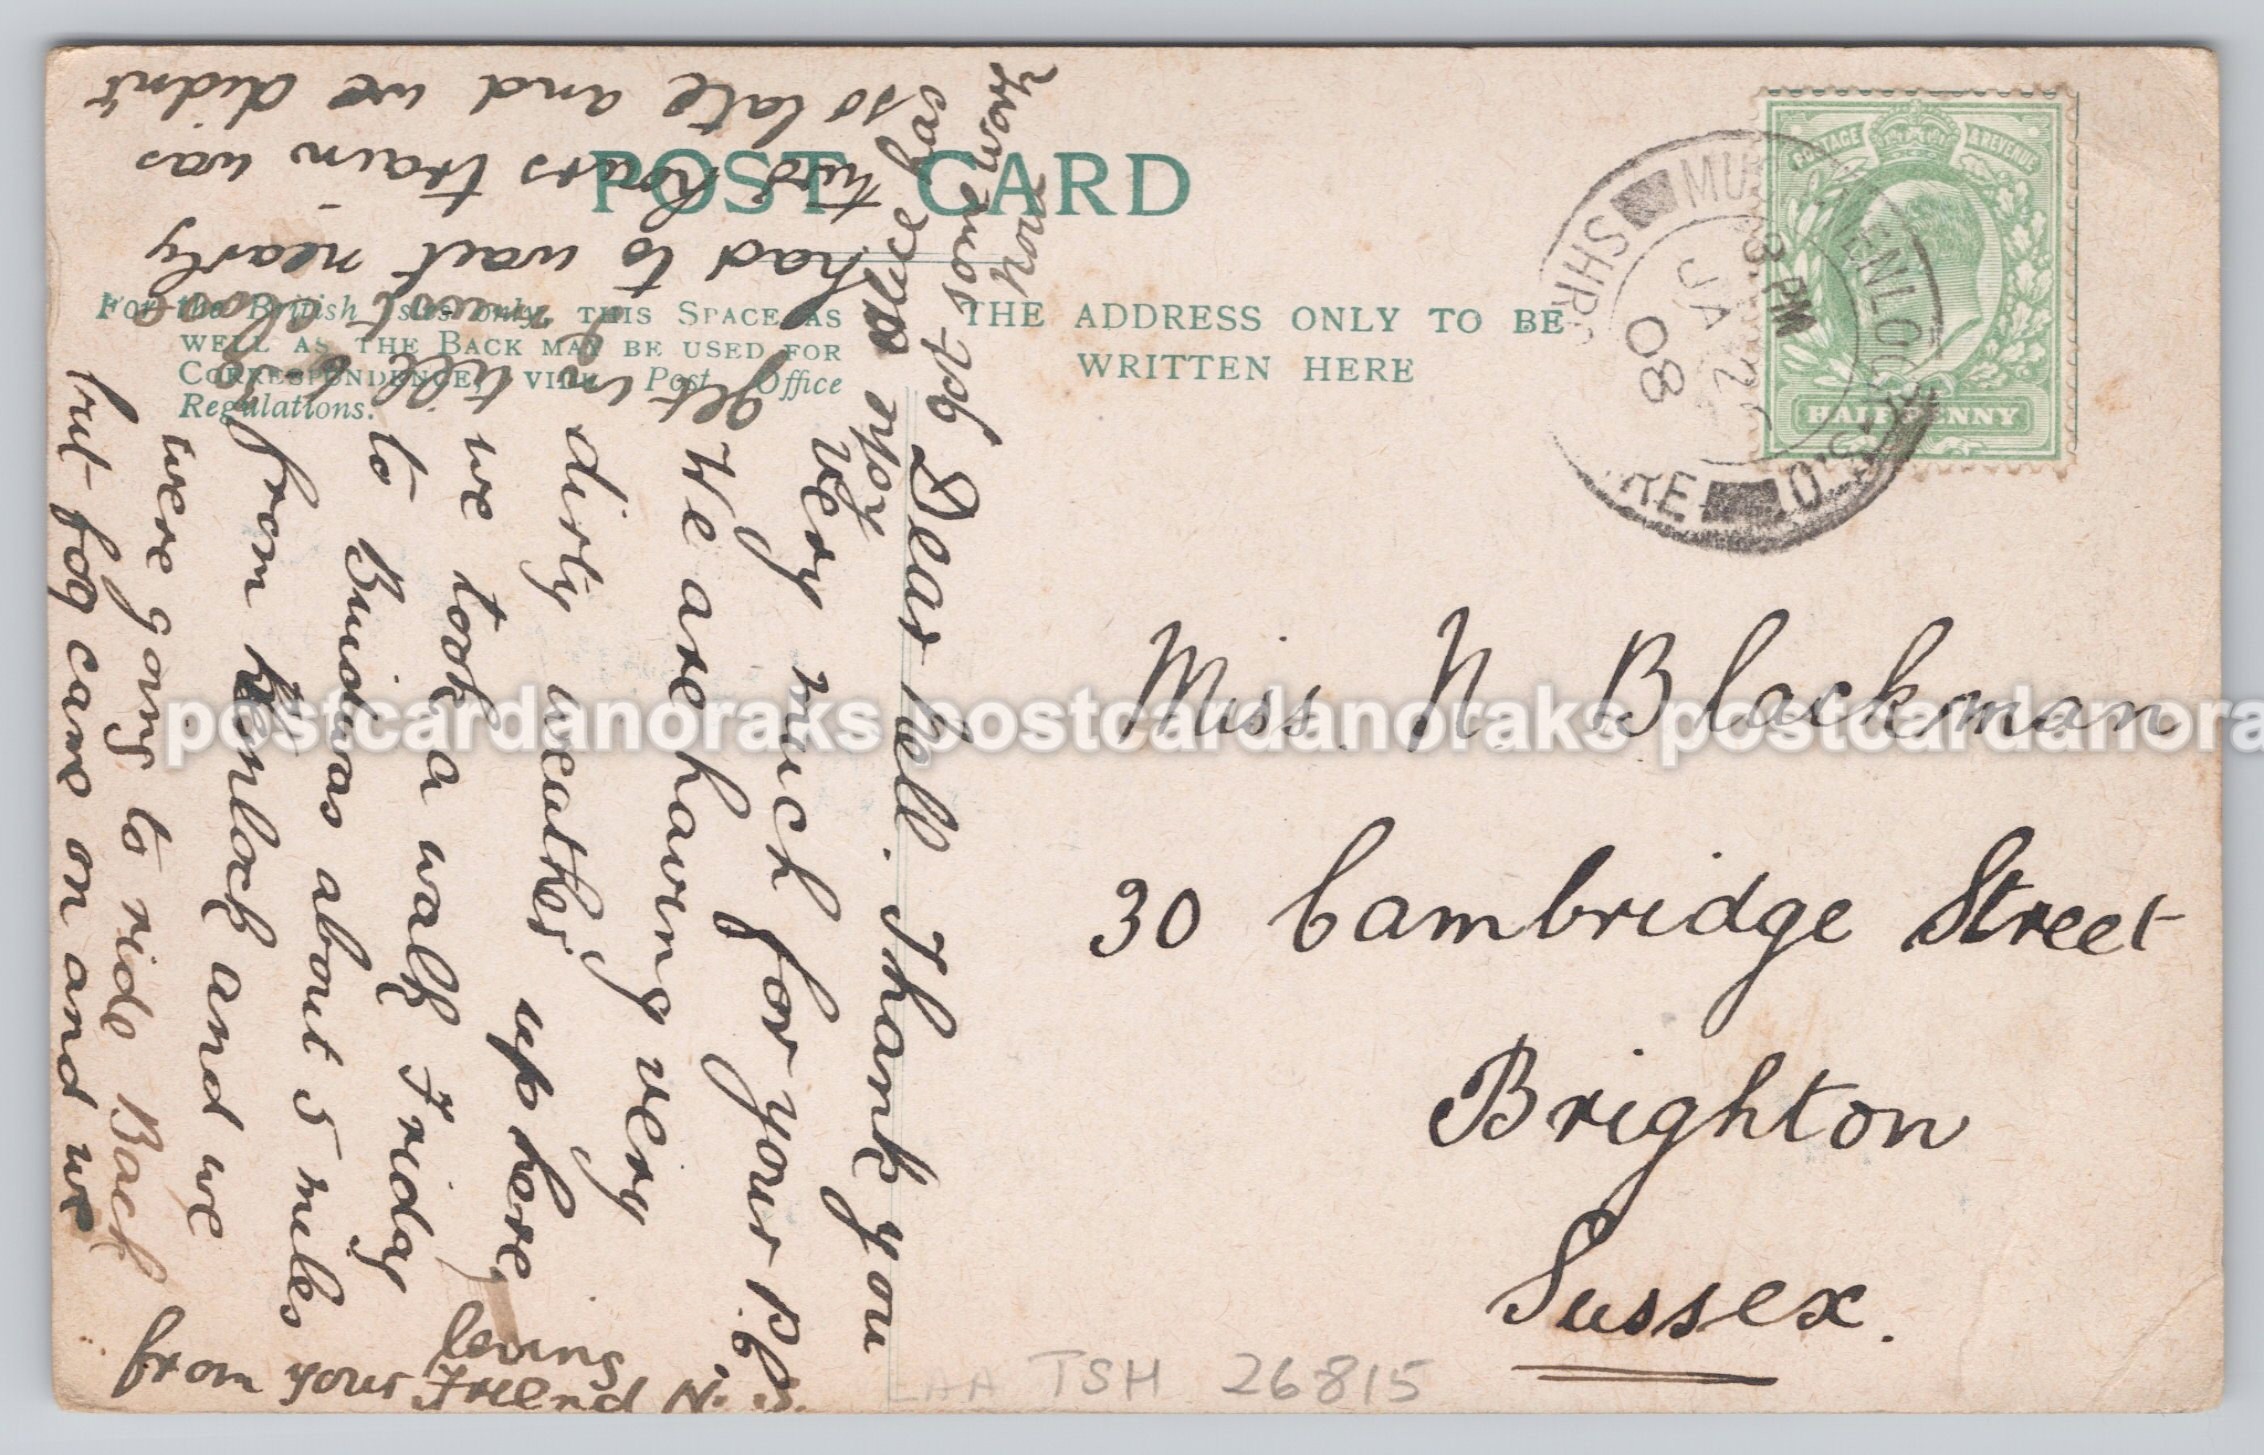 POST CARD
For the British Isles only, THIS SPACE AS
WELL AS THE BACK MAY BE USED FOR
CORRESPONDENCE, VIDE Post Office
Regulations.
THE ADDRESS ONLY TO BE
WRITTEN HERE
POSTAGE & REVENUE
HALFPENNY
MUCH WENLOCK S.O.
SHROPSHIRE
8. PM
JA
08
Miss. N. Blackman
30 Cambridge Street
Brighton
Sussex.
Dear Nell. Thank you
very much for your P.C.
We are having very
dirly weather up here
we took a walk Friday
to Buidwas about 5 miles
from Wenlock and we
were going to ride Back
but fog came on and we
had to wait nearly
two hours train was
so late and we didn't
get in till
from your loving Friend N. S.
LAA TSH 26815
postcardanoraks postcardanoraks postcardanora